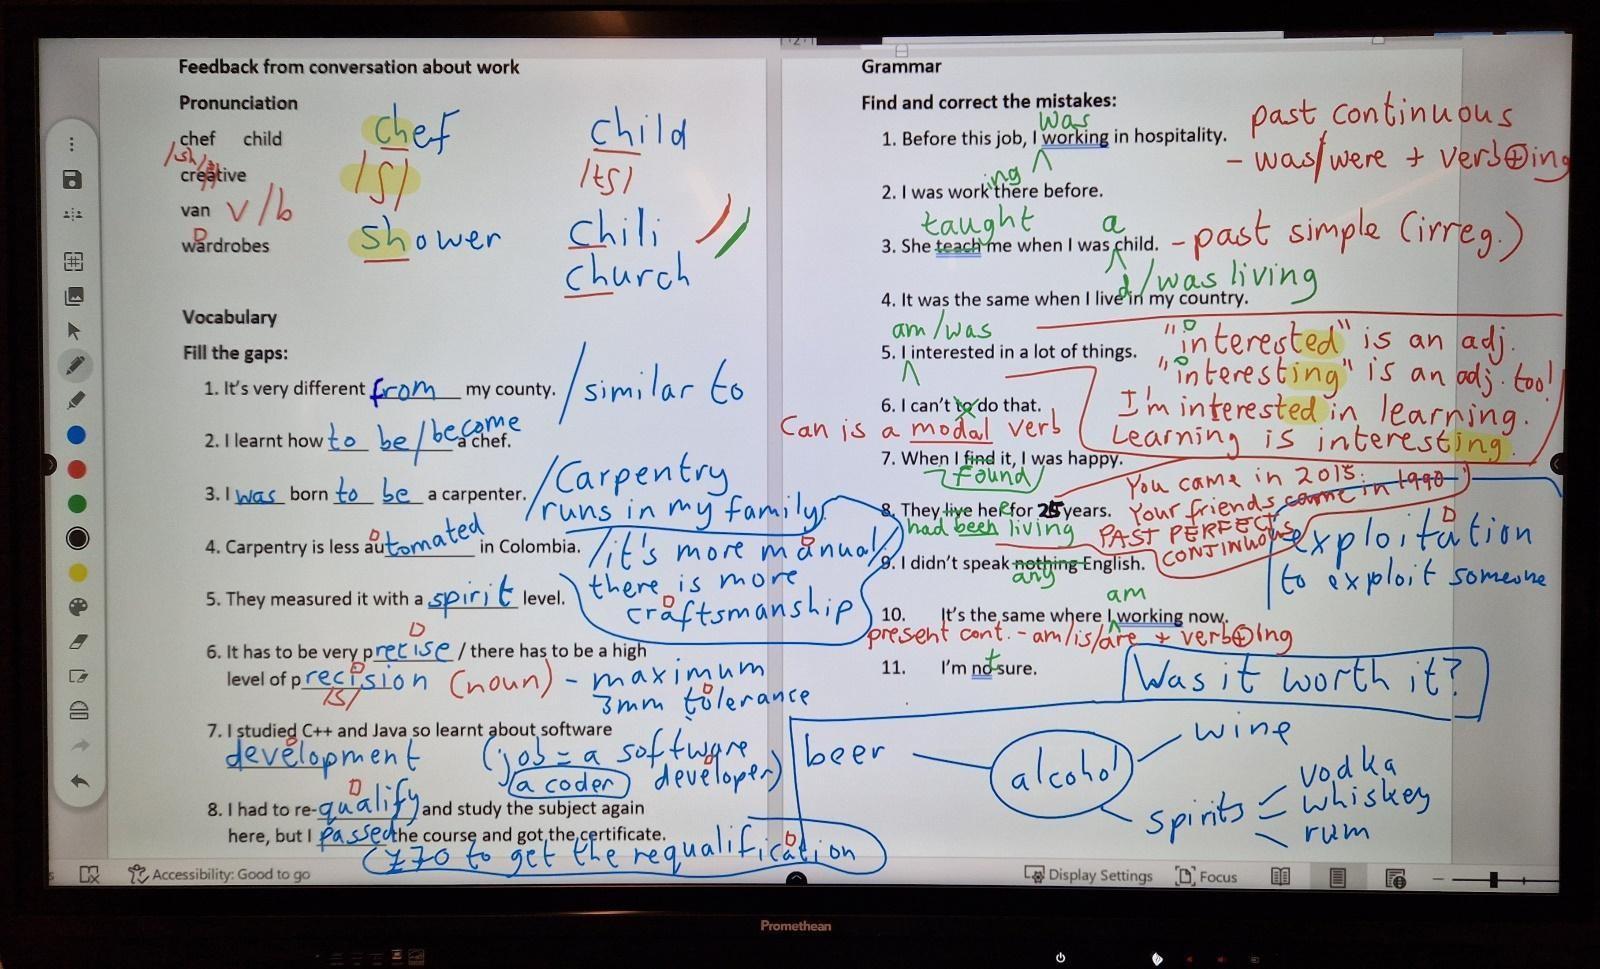 Feedback from conversation about work
Pronunciation
chef child
chef
child
/sh/
creative
/ʃ/
/tʃ/
van v/b
wardrobes
shower
chili
church
Vocabulary
Fill the gaps:
1. It's very different from my county. / similar to
2. I learnt how to be/become a chef.
3. I was born to be a carpenter. /Carpentry
runs in my family
4. Carpentry is less automated in Colombia. /it's more manual
there is more
craftsmanship
5. They measured it with a spirit level.
6. It has to be very precise / there has to be a high
level of precision (noun) - maximum
/s/
3mm tolerance
7. I studied C++ and Java so learnt about software
development (job = a software
a coder developer)
8. I had to re-qualify and study the subject again
here, but I passed the course and got the certificate.
(£70 to get the requalification
Grammar
Find and correct the mistakes:
was
1. Before this job, I working in hospitality.
past continuous
- was/were + verb+ing
ing
2. I was work there before.
taught a
3. She teach me when I was child. - past simple (irreg.)
d/was living
4. It was the same when I live in my country.
am/was
5. I interested in a lot of things.
"interested" is an adj.
"interesting" is an adj. too!
I'm interested in learning.
Learning is interesting.
6. I can't to do that.
Can is a modal verb
7. When I find it, I was happy.
found
You came in 2015.
Your friends came in 1990
8. They live here for 25 years.
had been living
PAST PERFECT
CONTINUOUS
9. I didn't speak nothing English.
any
exploitation
to exploit someone
am
10. It's the same where I working now.
present cont. - am/is/are + verb+ing
11. I'm not sure.
Was it worth it?
beer
alcohol
wine
spirits
vodka
whiskey
rum
Accessibility: Good to go
Display Settings
Focus
Promethean